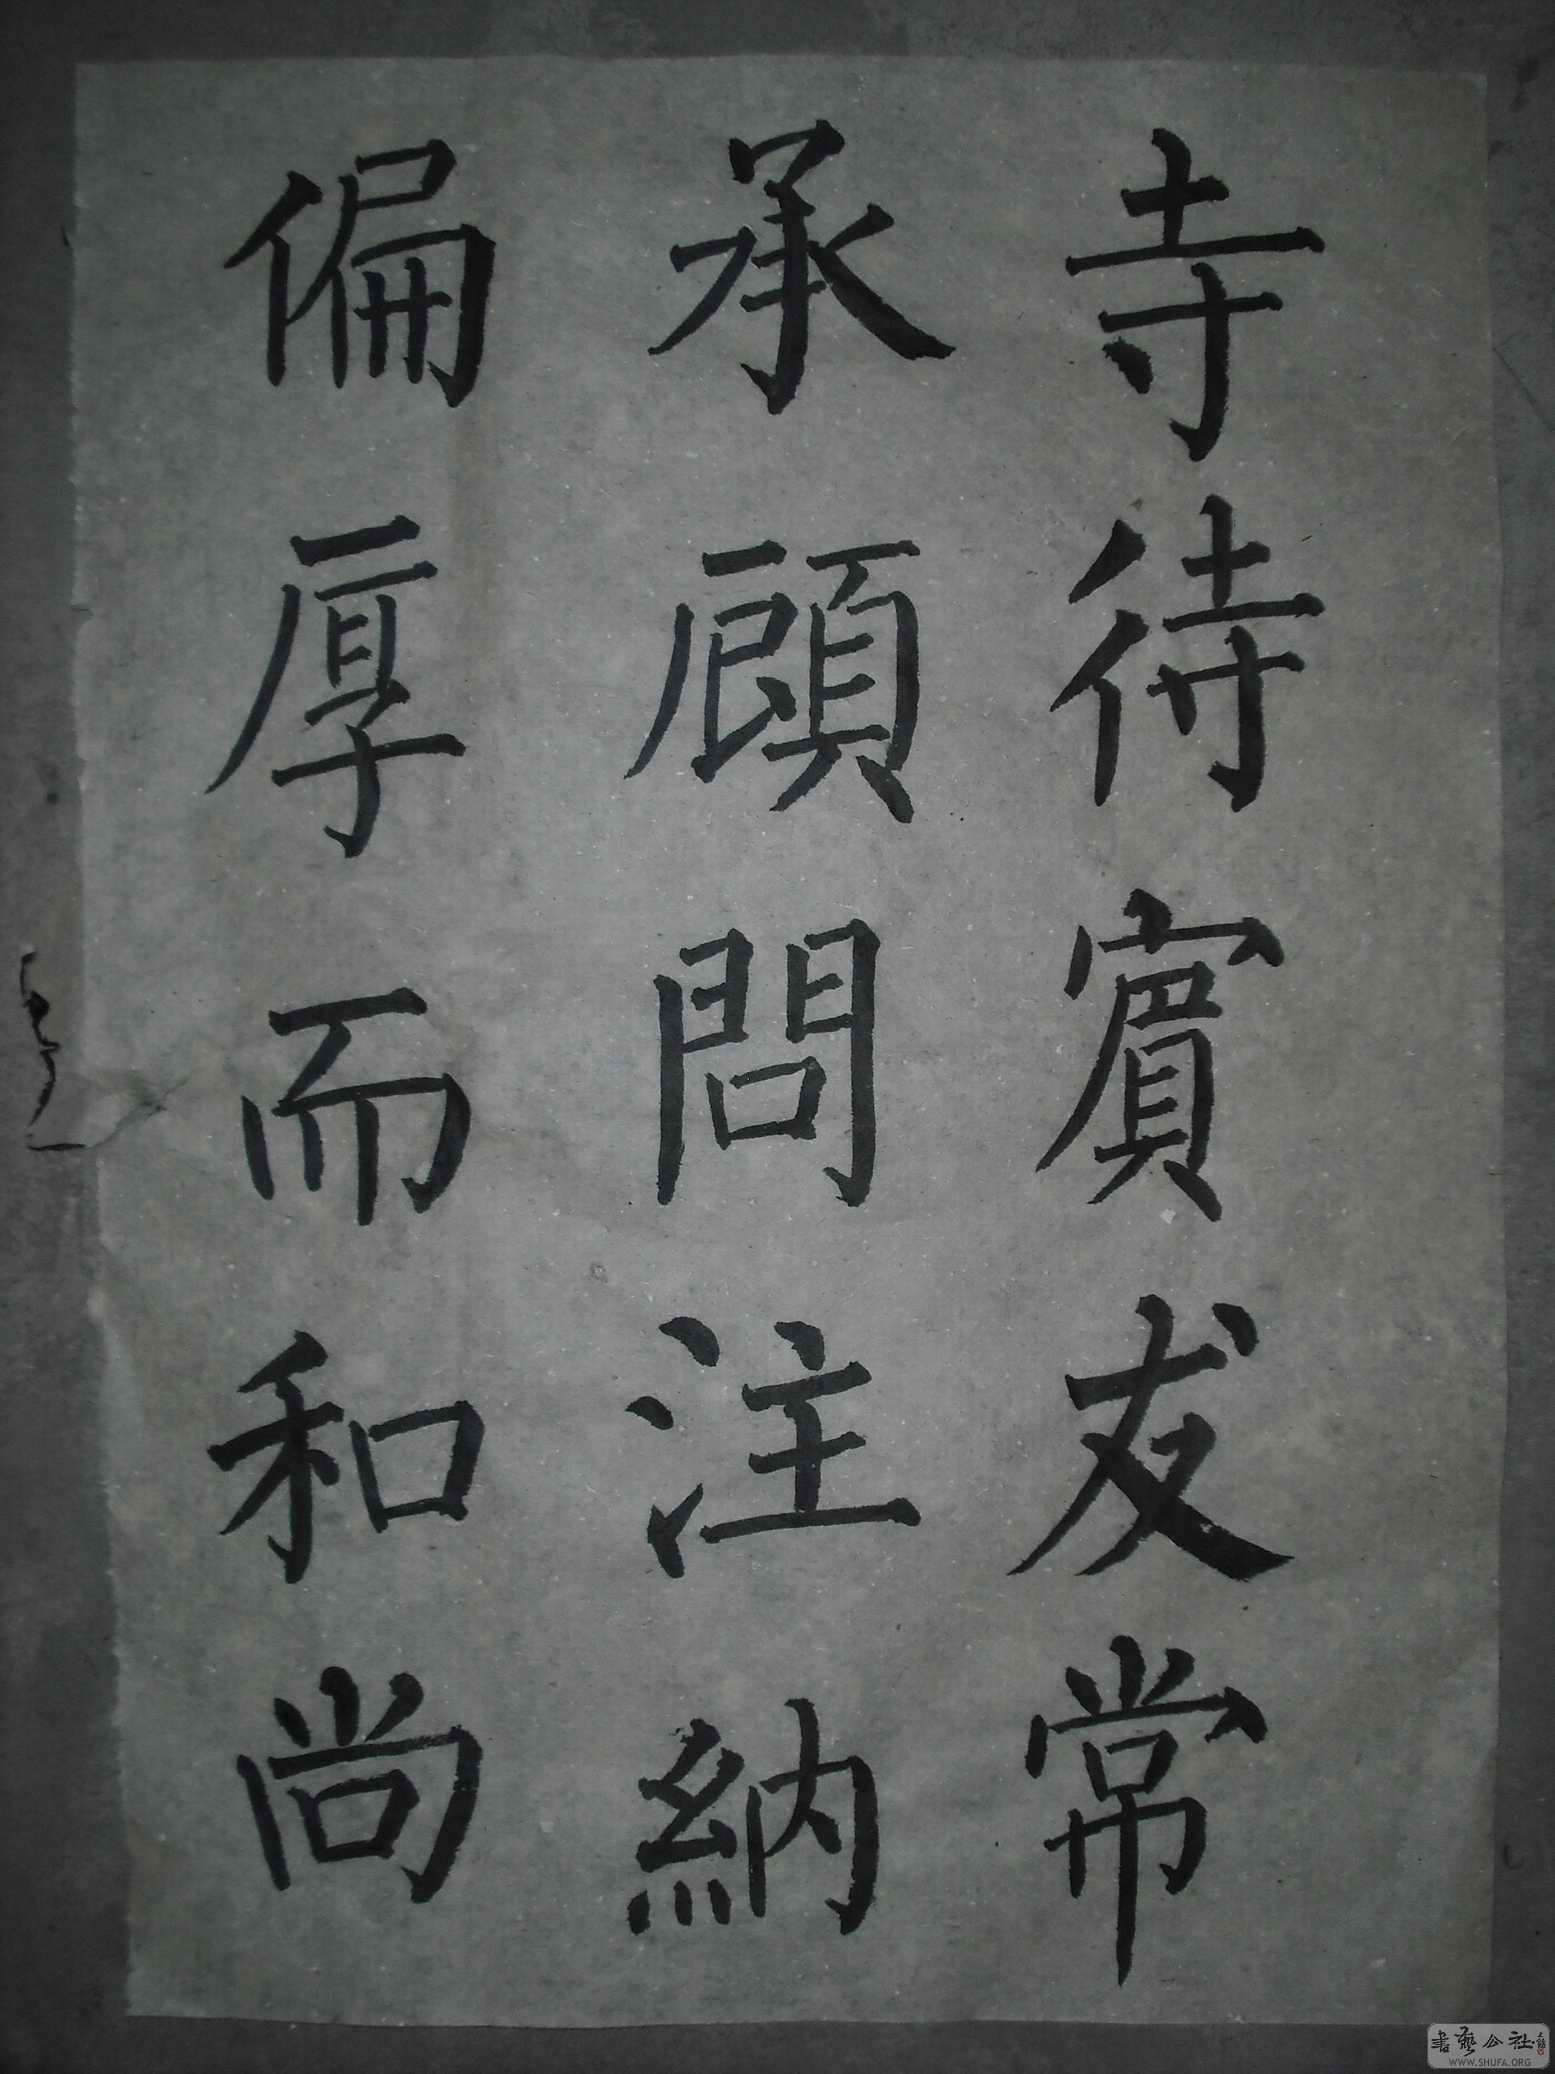 寺待賓友常
承顧問注納
偏厚而和尚
書藝公社
WWW.SHUFA.ORG